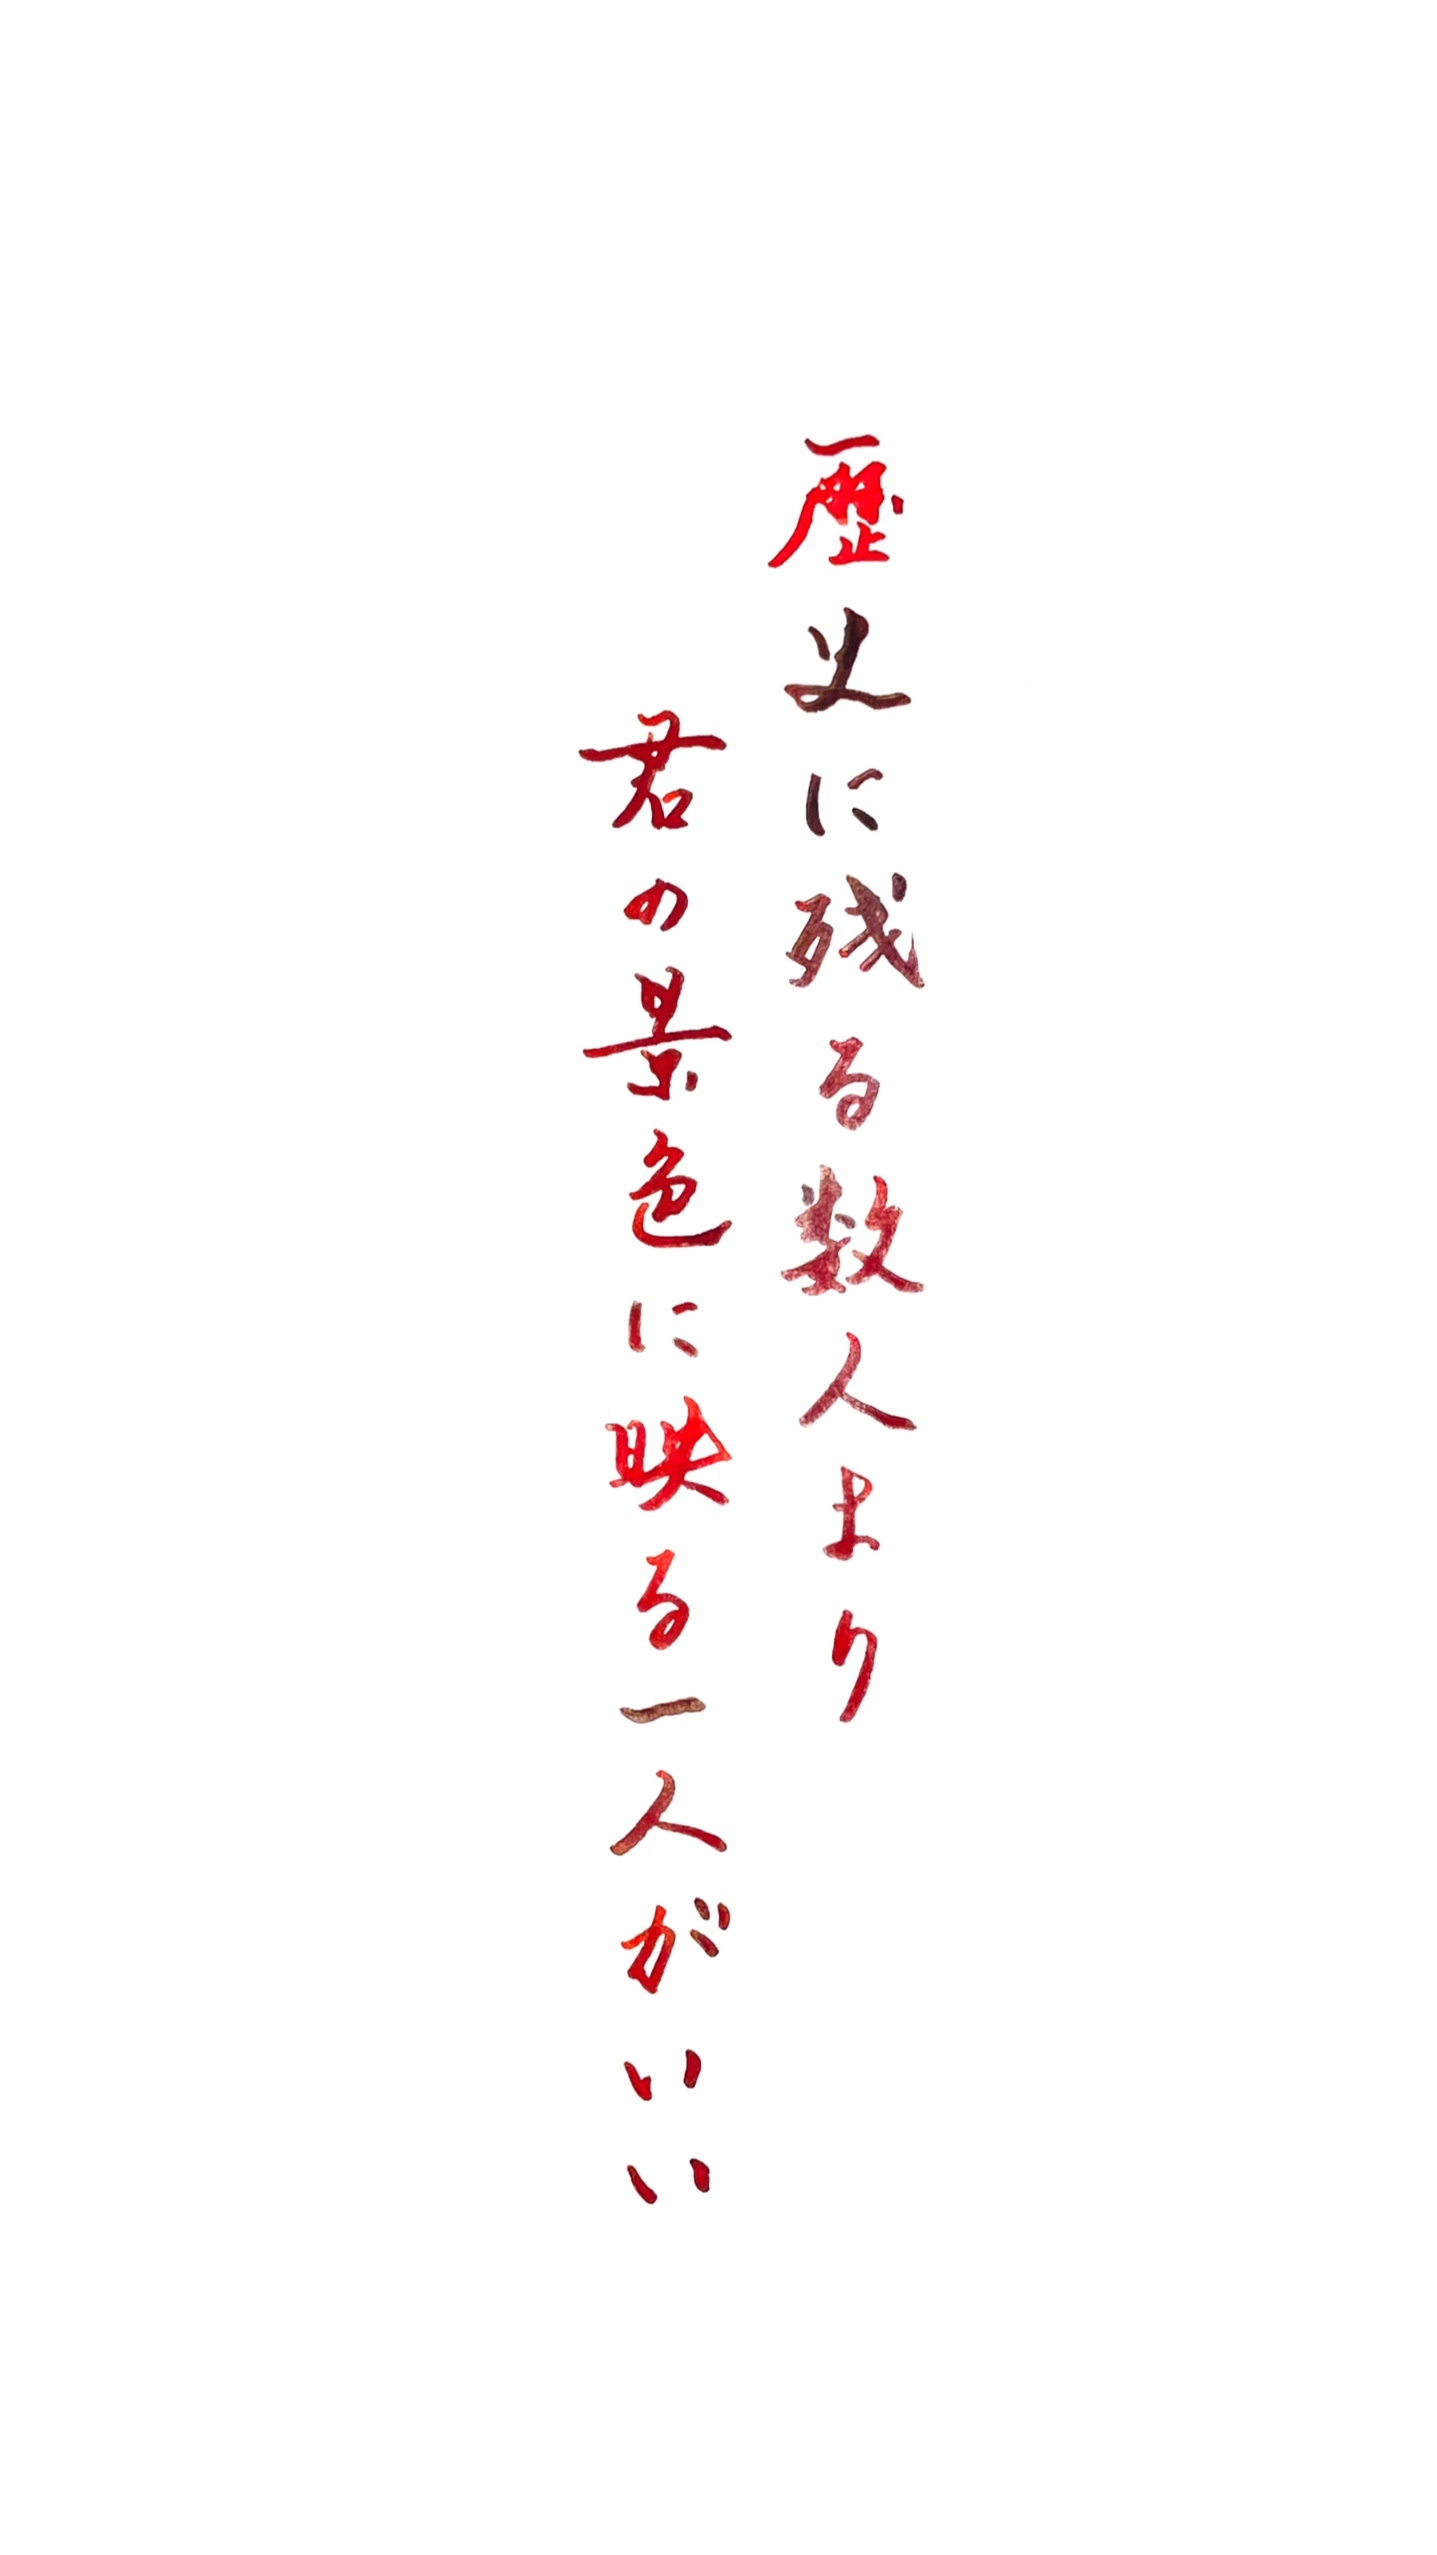 歴史に残る数人より
君の景色に映る一人がいい